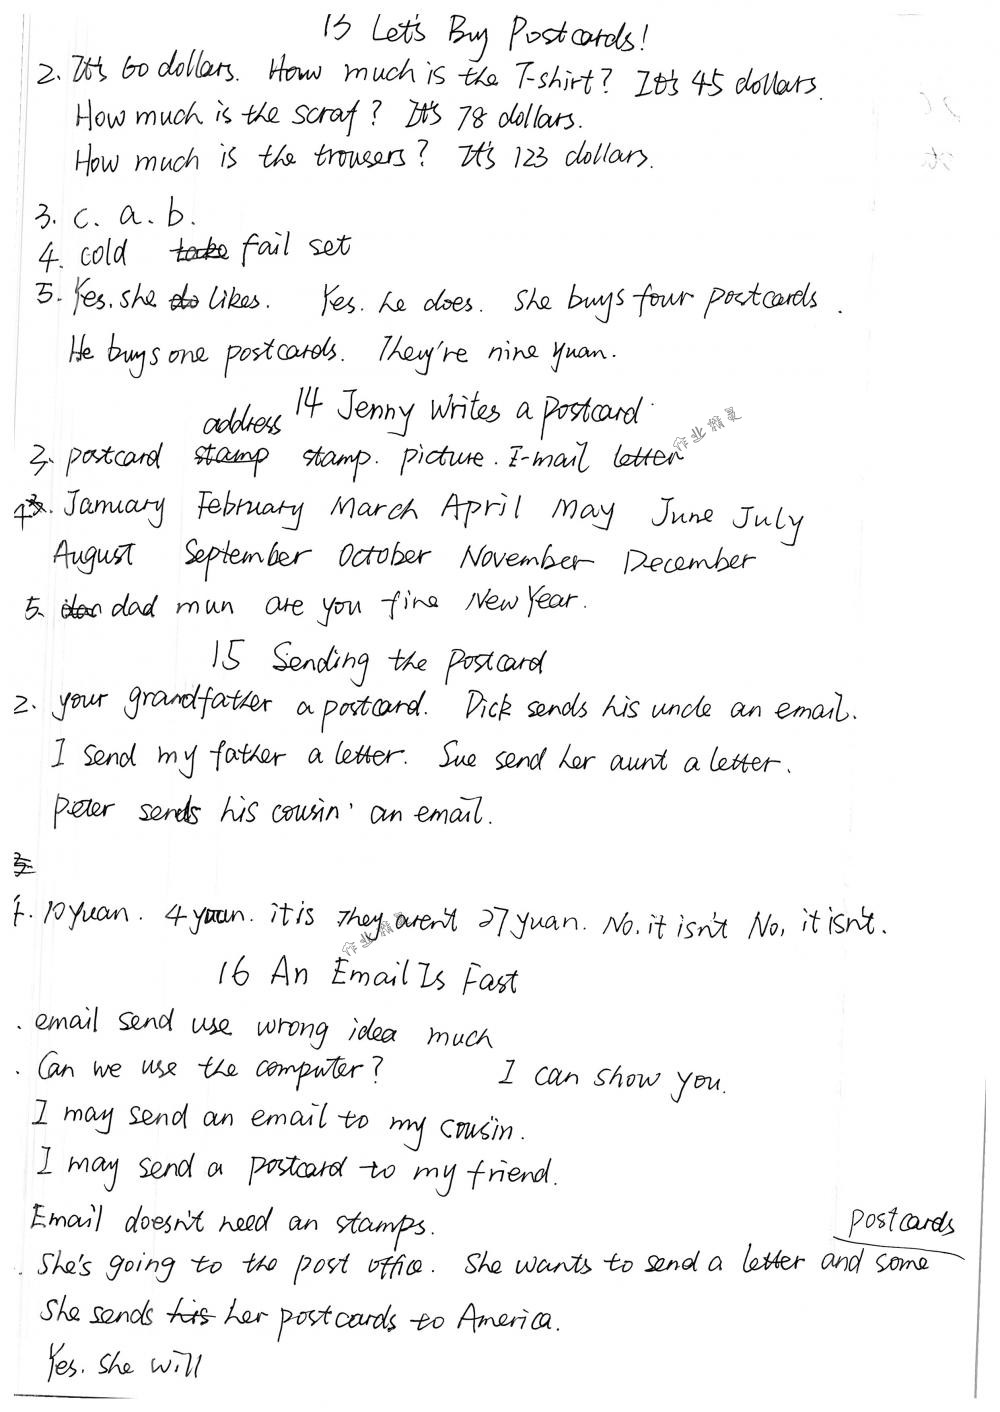 13 Let's Buy Postcards!
2. It's 60 dollars. How much is the T-shirt? It's 45 dollars.
How much is the scraf? It's 78 dollars.
How much is the trousers? It's 123 dollars.
3. c. a. b.
4. cold take fail set
5. Yes. she do likes. Yes. he does. She buys four postcards.
He buys one postcards. They're nine yuan.
14 Jenny Writes a postcard
address
3. postcard stamp stamp. picture. I-mail letter
作业精灵
4. January February March April May June July
August September October November December
5. dad mun are you fine New Year.
15 Sending the Postcard
2. your grandfather a postcard. Dick sends his uncle an email.
I send my father a letter. Sue send her aunt a letter.
Peter sends his cousin an email.
4. 10 yuan. 4 yuan. it is They aren't 27 yuan. No, it isn't No, it isn't.
作业精灵
16 An Email Is Fast
. email send use wrong idea much
. Can we use the computer? I can show you.
I may send an email to my cousin.
I may send a postcard to my friend.
Email doesn't need an stamps.
postcards
. She's going to the post office. She wants to send a letter and some
She sends his her postcards to America.
Yes. she will